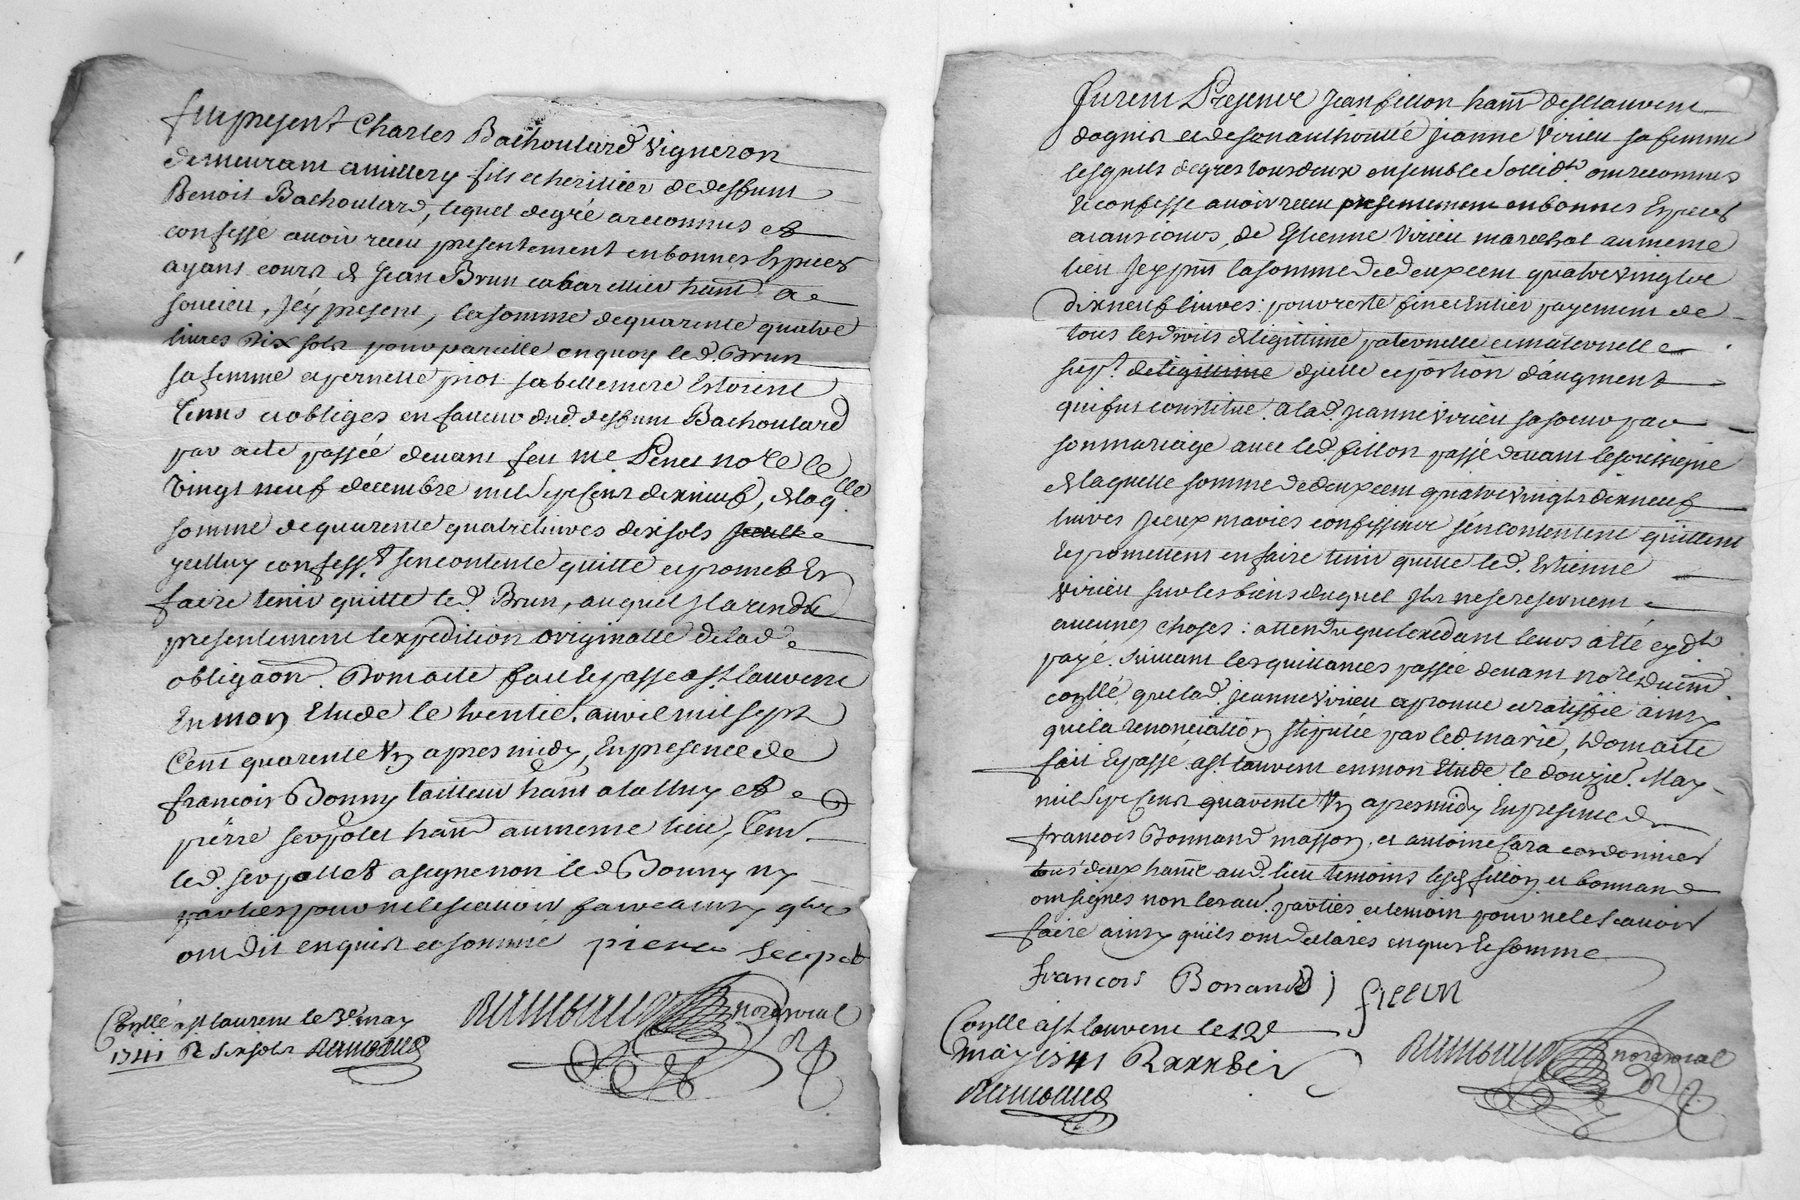 fut present Charles Bachoulard vigneron
demeurant a millery fils et heritier de deffunt
Benoit Bachoulard, lequel de gré a reconnus et
confessé avoir receu presentement en bonnes Especes
ayant cours de Jean Brun cabarettier hant a
soucieu, Jcy present, la somme de quarente quatre
livres Dix sols pour pareille en quoy led. Brun
sa femme et pernette piot sa bellemere Estoient
Tenus et obliges en faveur dud. deffunt Bachoulard
par acte passée devant feu me Penet nore le
vingt neuf decembre mil sept cent dix neuf, de laqlle
somme de quarente quatre livres dix sols
yceluy confesst s'en contente quitte et promet En
faire tenir quitte led. Brun, auquel Jl a rendu
presentement l'expedition originalle de lad.
obligaon. Dont acte fait et passé a st laurent
En mon Etude le trentie. avril mil sept
Cent quarente Un apres midy, En presence de
francois Bonny tailleur hant a et
pierre serpolet hant au meme lieu, Tem.
led. serpollet a signe non led Bonny ny
parties pour ne le scavoir faire ainsy qlz
ont dit enquis et somme pierre Serpolet
Conllé a st laurent le 3e may
1741 R six sols
nore royal
furent Presence Jean fillon hant de st laurent
dagnis et de son authorité Jeanne Virieu sa femme
lesquels de gres tous deux ensemble solidt. ont reconnus
et confesse avoir receu presentement en bonnes Especes
aians cours, de Estienne Virieu marechal au meme
lieu Jcy pnt la somme de deux cent quatre vingt
dix neuf livres: pour reste fin et Entier payement de
tous les droits de legittime paternelle et maternelle
supt. de legittime dicelle et portion d'augment
qui fut constitué a lad. Jeanne Virieu sa soeur par
son mariage avec led. fillon passé devant le soussigné
de laquelle somme de deux cent quatre vingts dix neuf
livres Jceux mariés confessent s'en contentent quittent
Et promettent en faire tenir quitte led. Estienne
Virieu sur les biens duquel Jls ne se reservent
aucunes choses: attendu que l'exedant leurs a été cy dt
payé. suivant les quittances passée devant nore
conllé, que lad. Jeanne Virieu aprouve et ratiffie ainsy
que la renonciation stipulée par led. marié, Dont acte
fait Et passé a st laurent en mon Etude le douzie. May
mil sept Cent quarente Un apres midy En presence de
francois Bonnand masson, et antoine Sara cordonnier
tous deux hant aud. lieu temoins lesd. fillon et bonnand
ont signes non les au. parties et temoin pour ne le scavoir
faire ainsy quils ont declarés enquis Et somme
francois Bonand fillon
Conllé a st laurent le 12e
may 1741
nore royal